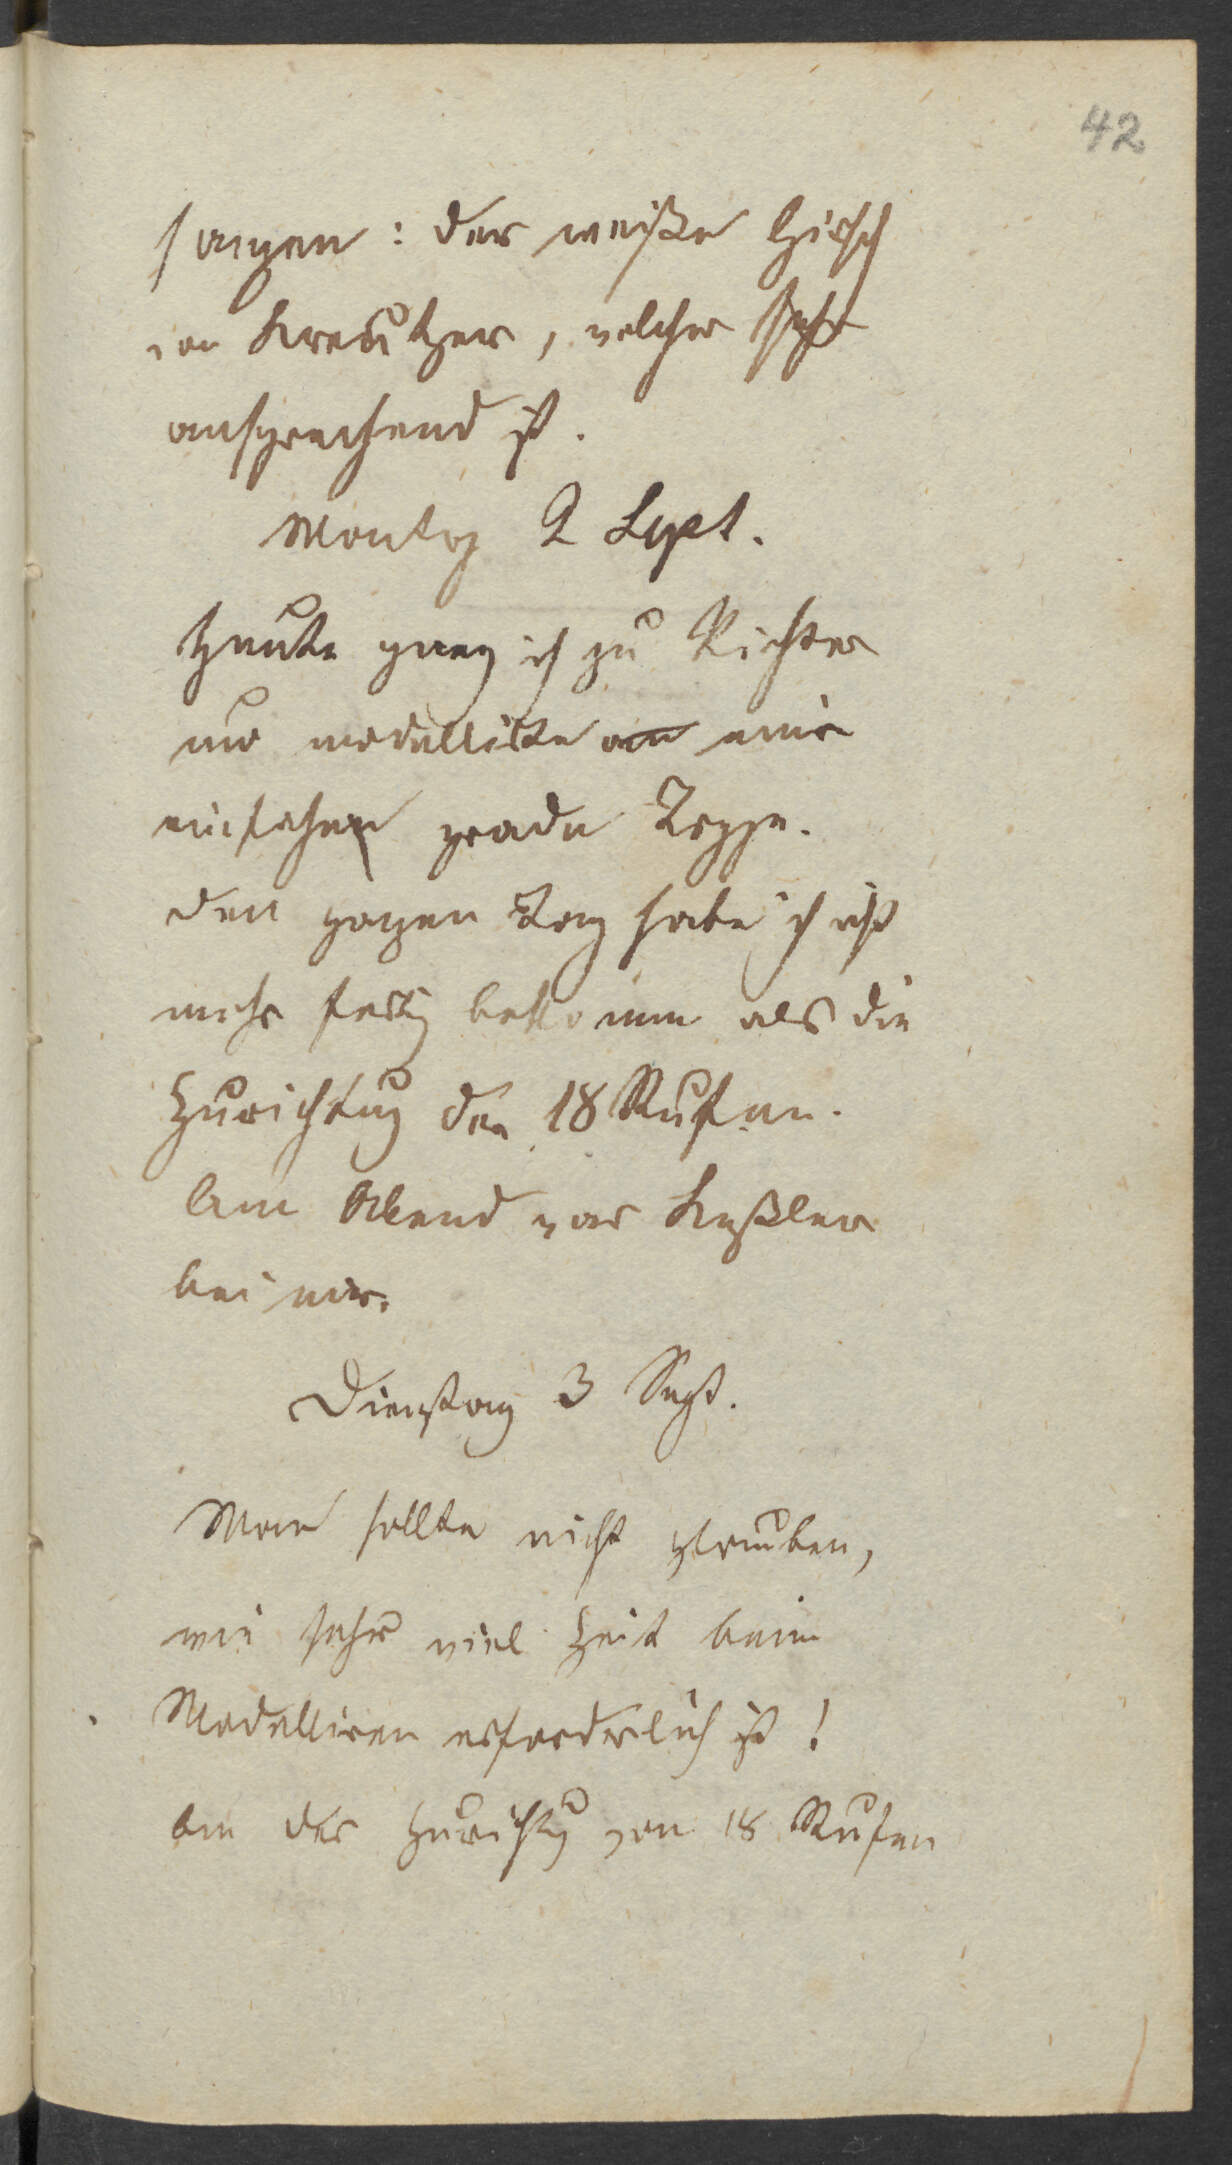 42
sangen: der weiße Hirsch
von Kreutzer, welcher sehr
ansprechend ist.
Montag 2 Sept.
Heute ging ich zu Richter
und modellirte an eine
einfachen grade Treppe.
den ganzen Tag habe ich nicht
mehr fertig bekommen als die
Zurichtung der 18 Stufen.
Am Abend war Keßler
bei mir.
Dienstag 3 Sept.
Man sollte nicht glauben,
wie sehr viel Zeit beim
Modelliren erforderlich ist!
bei der Zurichtung von 18 Stufen